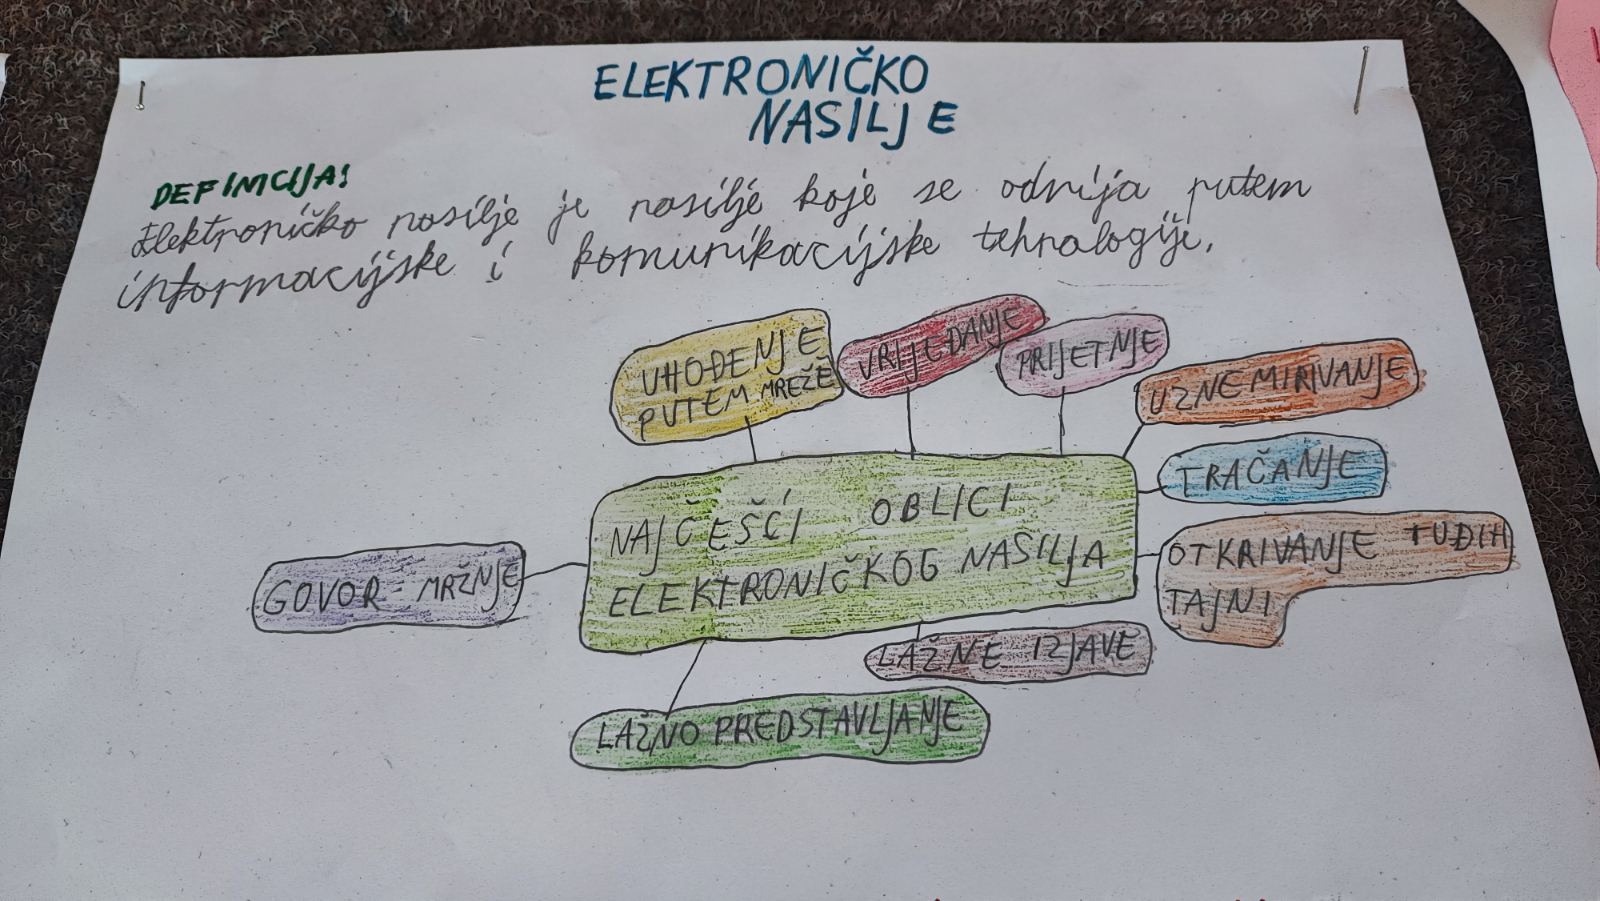 ELEKTRONIČKO
NASILJE
DEFINICIJA!
Elektroničko nasilje je nasilje koje se odnija putem
informacijske i komunikacijske tehnologije.
UHOĐENJE
PUTEM MREŽE
VRIJEĐANJE
PRIJETNJE
UZNEMIRIVANJE
TRAČANJE
NAJČEŠĆI OBLICI
ELEKTRONIČKOG NASILJA
OTKRIVANJE TUĐIH
TAJNI
GOVOR MRŽNJE
LAŽNE IZJAVE
LAŽNO PREDSTAVLJANJE